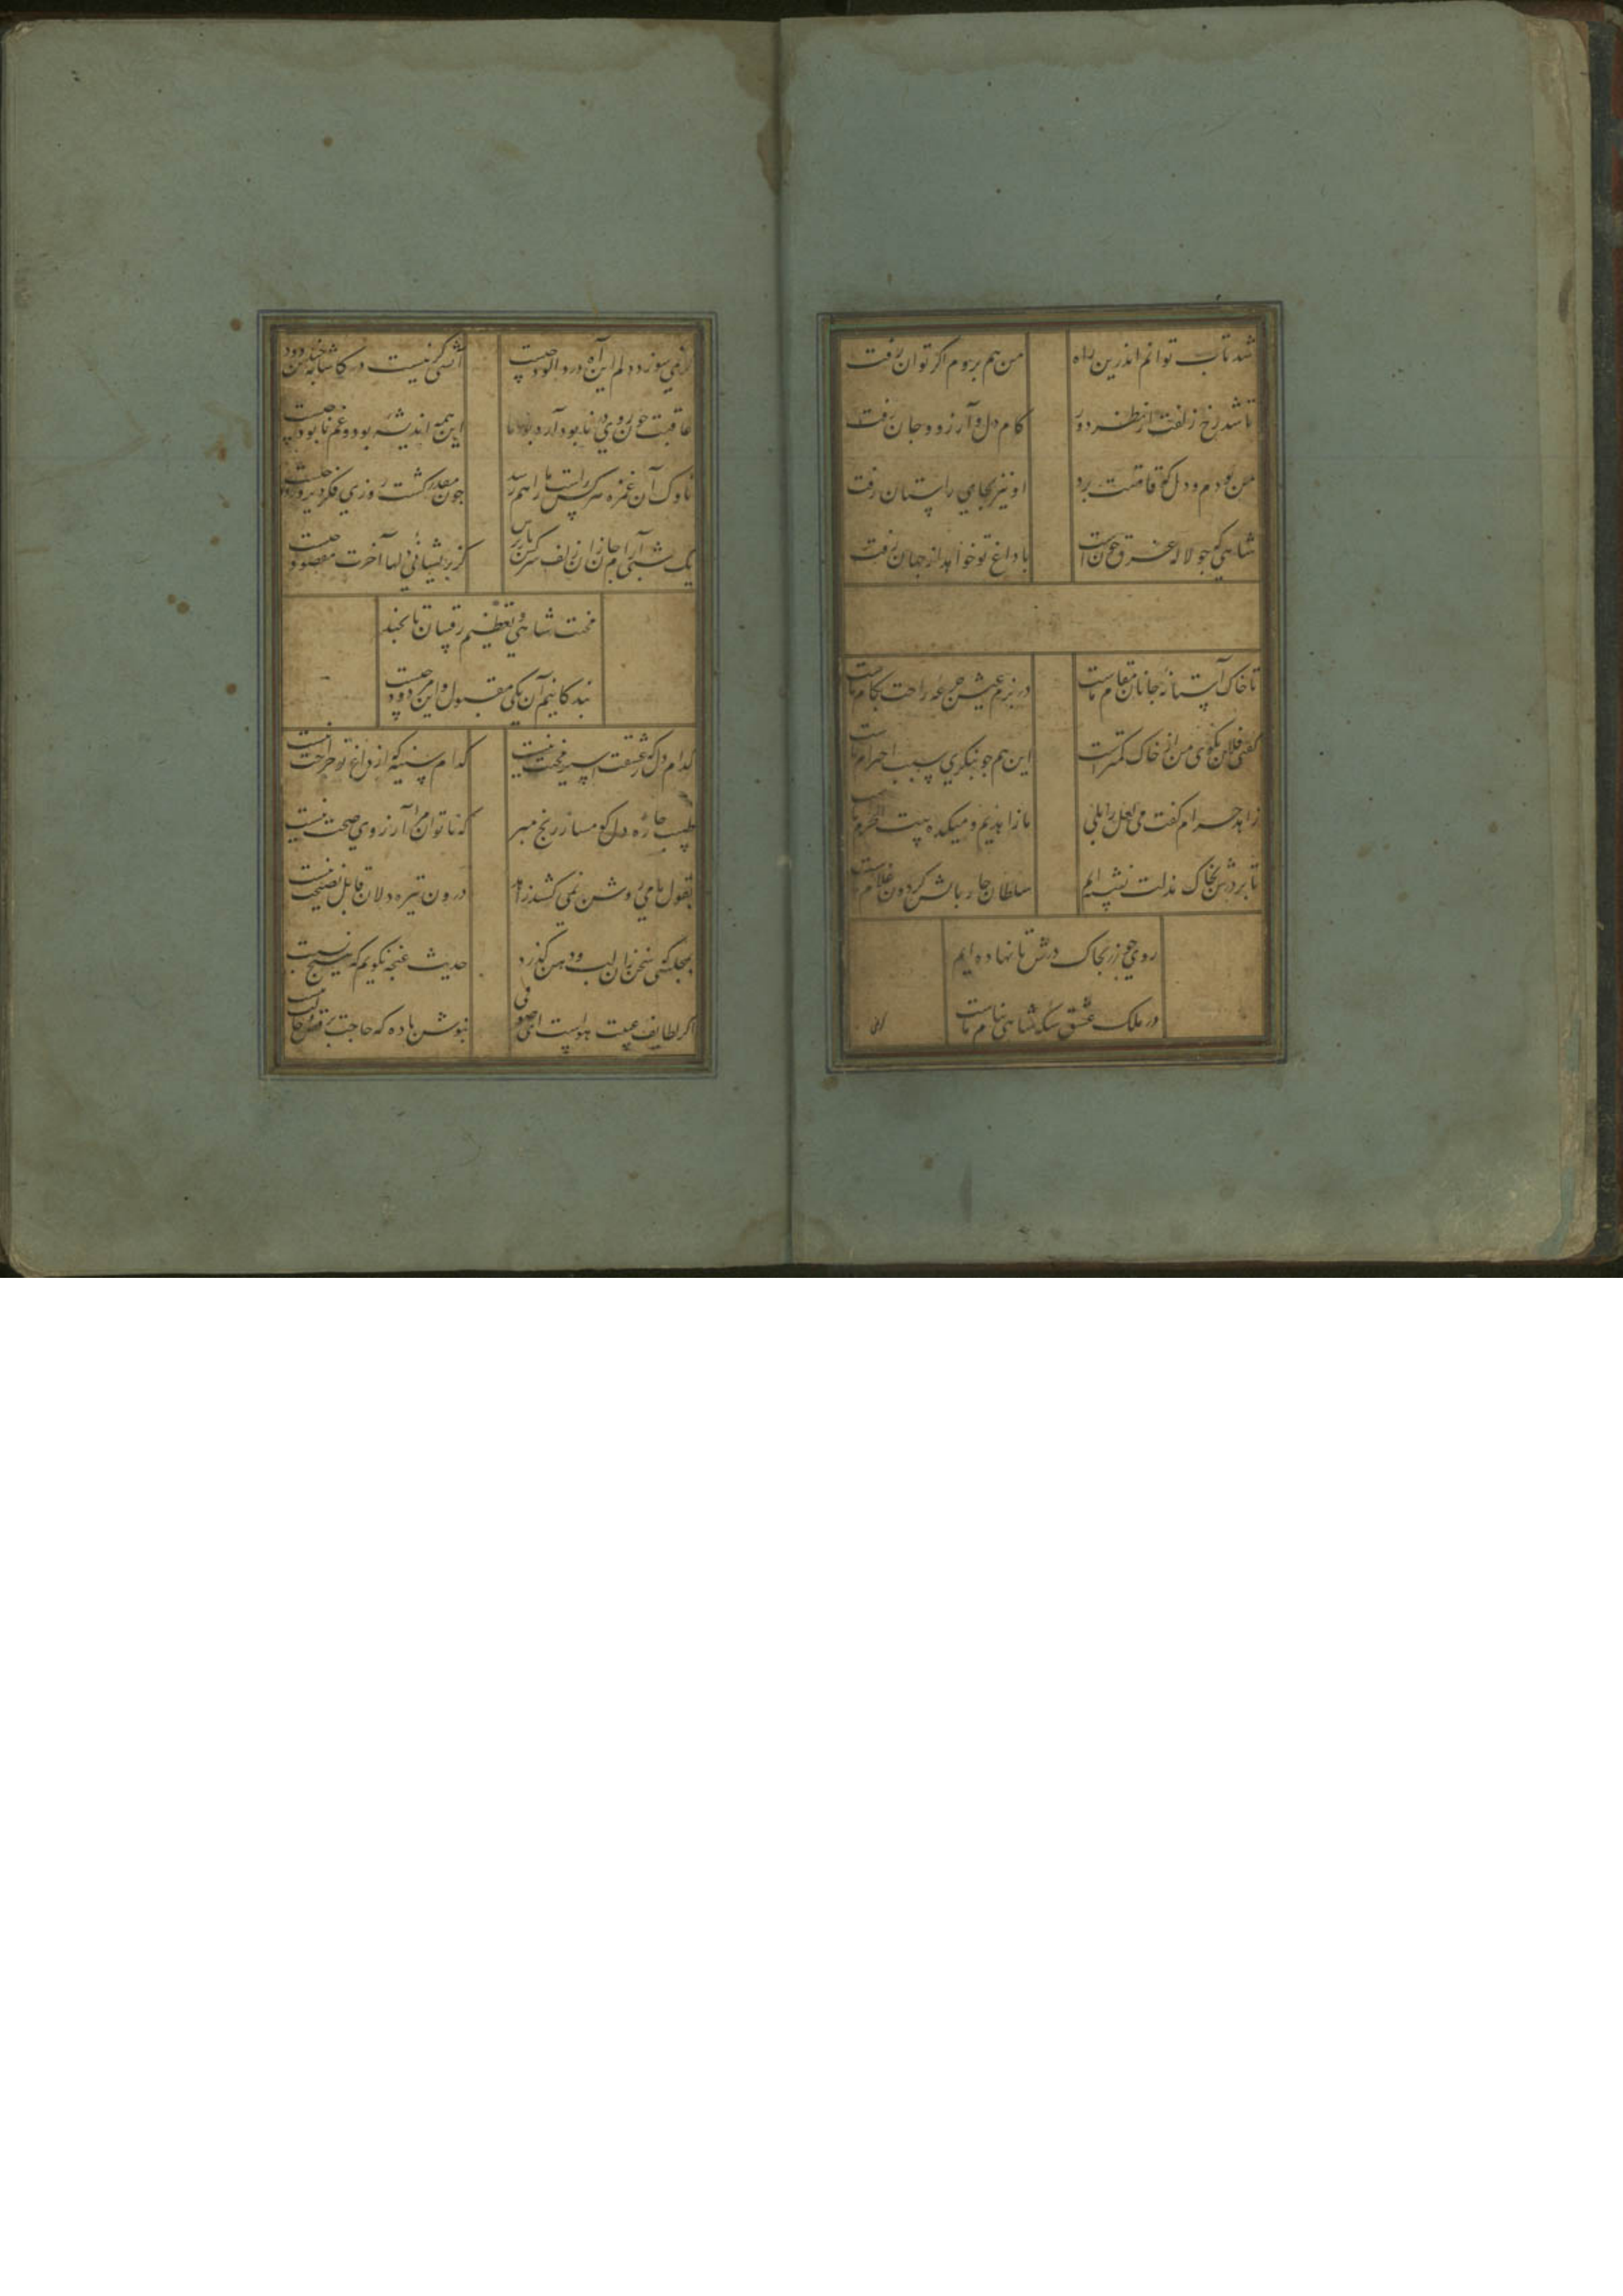 شد تاب توانم اندرین راه من هم بروم اگر توان رفت
تا شد رخ و زلفت از نظر دور کام دل و آرزو و جان رفت
من بودم و دل که قامتت برد او نیز بجای راستان رفت
شاهی که جو لاله غرق خون است با داغ تو خواهد از جهان رفت
تا خاک آستانه جانان مقام ماست در بزم عیش جرعه راحت بکام ماست
گفتی فلان بکوی من از خاک کمترست این هم جو بنگری سبب احترام ماست
زاهد حرام گفت می لعل را بلی ما زاهدیم و میکده بیت الحرام ماست
تا بر درش بخاک مذلت نشسته ایم سلطان جار بالش گردون غلام ماست
روی جو زر بخاک درش تا نهاده ایم
در ملک عشق سکه شاهی بنام ماست
گر نمی سوزد دلم این آه درد آلود چیست آتشی گر نیست در کاشانه جندین دود چیست
عاقبت چون روی در نابود دارد بود ما این همه اندیشه بود و غم نابود چیست
ناوک آن غمزه هرکس راست ما را هم رسد جون مقدر گشت روزی فکر دیر و زود چیست
یک شبی آرام جان زان زلف سرکش باز پرس کز پریشانی دلها آخرت مقصود چیست
محنت شاهی و تعظیم رقیبان تا بچند
بندگانیم آن یکی مقبول و این مردود چیست
کدام دل که ز عشقت اسیر محنت نیست کدام سینه که از داغ تو جراحت نیست
طبیب جاره دل کو مساز رنج مبر که ناتوان مرا آرزوی صحت نیست
بقول ما می روشن نمی کشد زاهد درون تیره دلان قابل نصیحت نیست
بمجلسی که سخن زان لب و دهن گذرد حدیث غنچه نگویم که هیچ نسبت نیست
اگر لطایف غیبت هواست ای صوفی بنوش باده که حاجت به قصر و جنت نیست